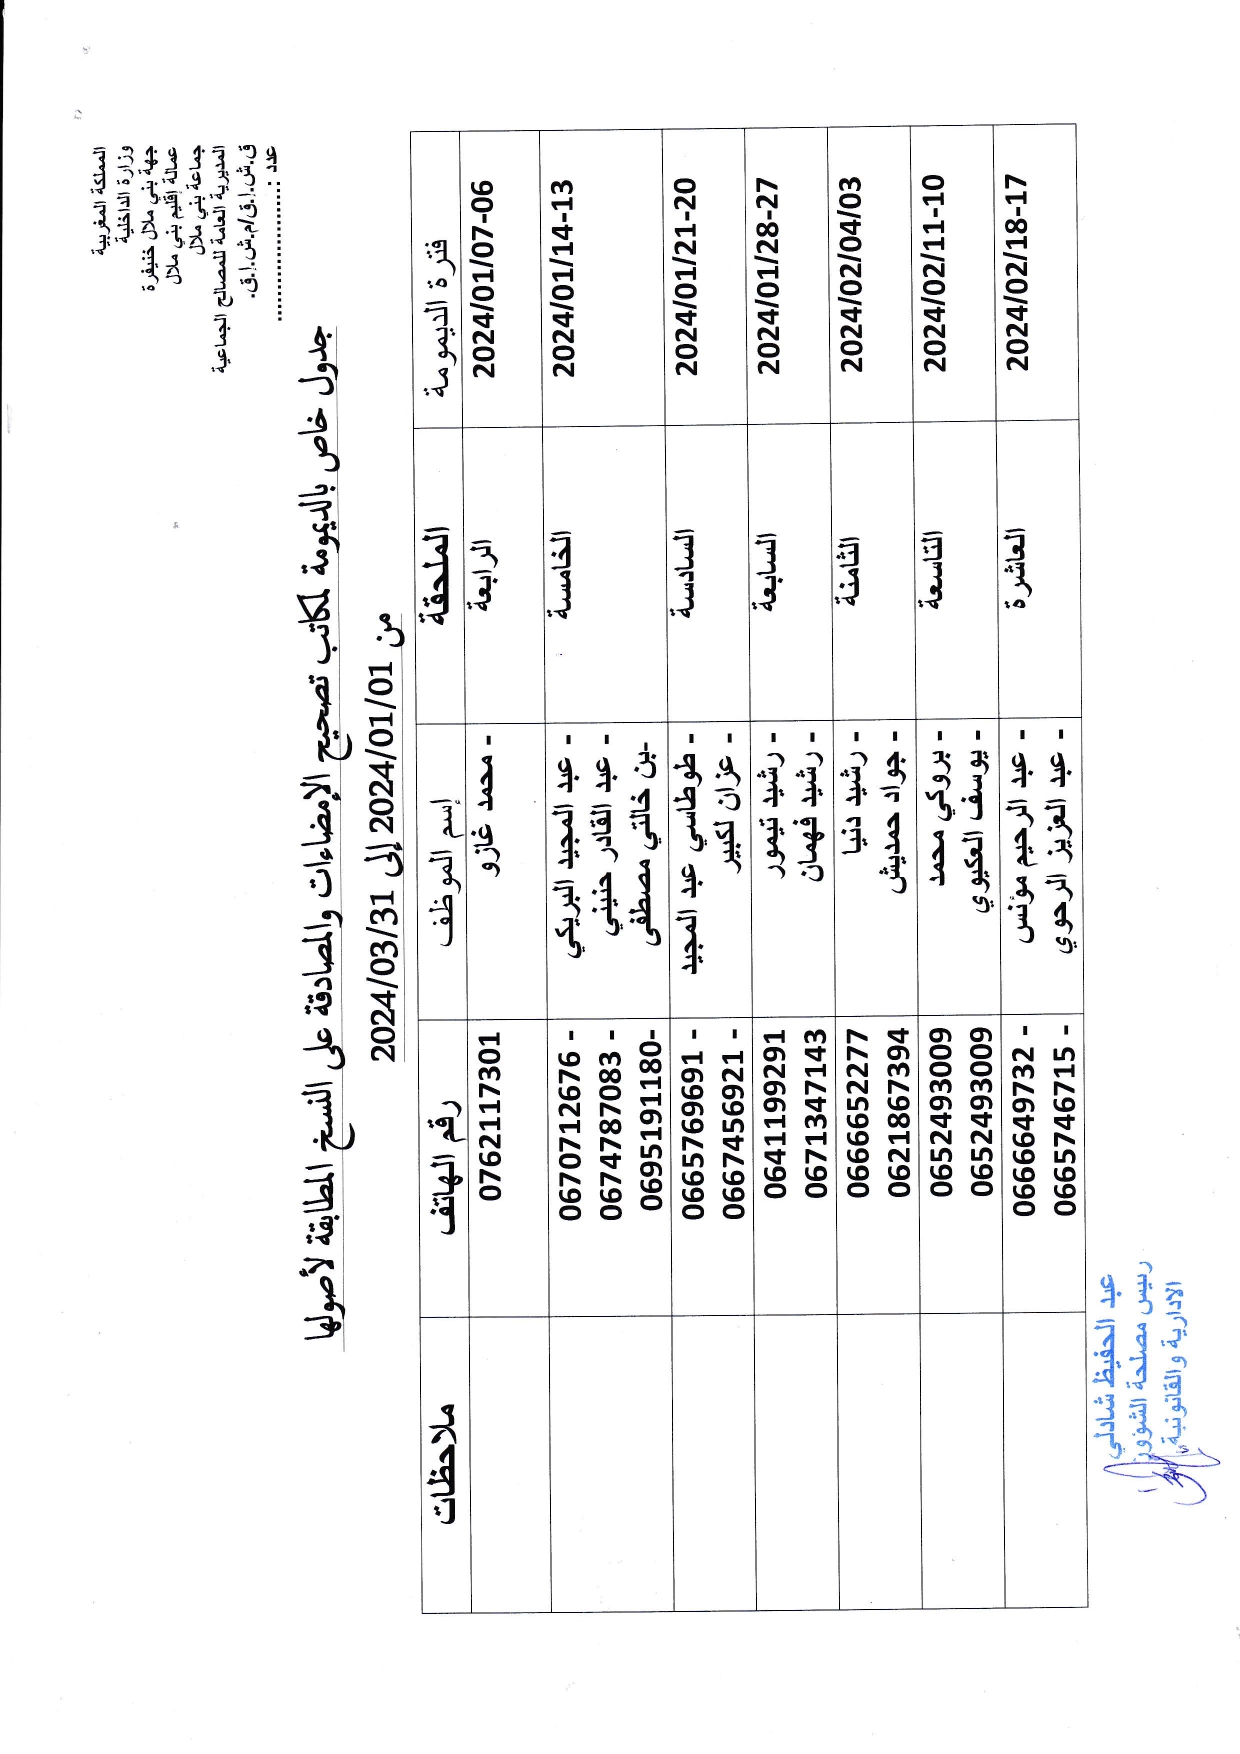 المملكة المغربية
وزارة الداخلية
جهة بني ملال خنيفرة
عمالة إقليم بني ملال
جماعة بني ملال
المديرية العامة للمصالح الجماعية
ق.ش.إ.ق/م.ش.إ.ق.
عدد : ......................
جدول خاص بالديمومة لمكاتب تصحيح الإمضاءات والمصادقة على النسخ المطابقة لأصولها
من 2024/01/01 إلى 2024/03/31
فترة الديمومة الملحقة إسم الموظف رقم الهاتف ملاحظات
2024/01/07-06 الرابعة - محمد غازو 0762117301
2024/01/14-13 الخامسة - عبد المجيد البريكي - 0670712676
- عبد القادر حنيني - 0674787083
-بن خالتي مصطفى -0695191180
2024/01/21-20 السادسة - طوطاسي عبد المجيد - 0665769691
- عزان لكبير - 0667456921
2024/01/28-27 السابعة - رشيد تيمور 0641199291
- رشيد فهمان 0671347143
2024/02/04/03 الثامنة - رشيد دنيا 0666652277
- جواد حمديش 0621867394
2024/02/11-10 التاسعة - بروكي محمد 0652493009
- يوسف العكيوي 0652493009
2024/02/18-17 العاشرة - عبد الرحيم مؤنس - 0666649732
- عبد العزيز الرحوي - 0665746715
عبد الحفيظ شادلي
رئيس مصلحة الشؤون
الادارية والقانونية